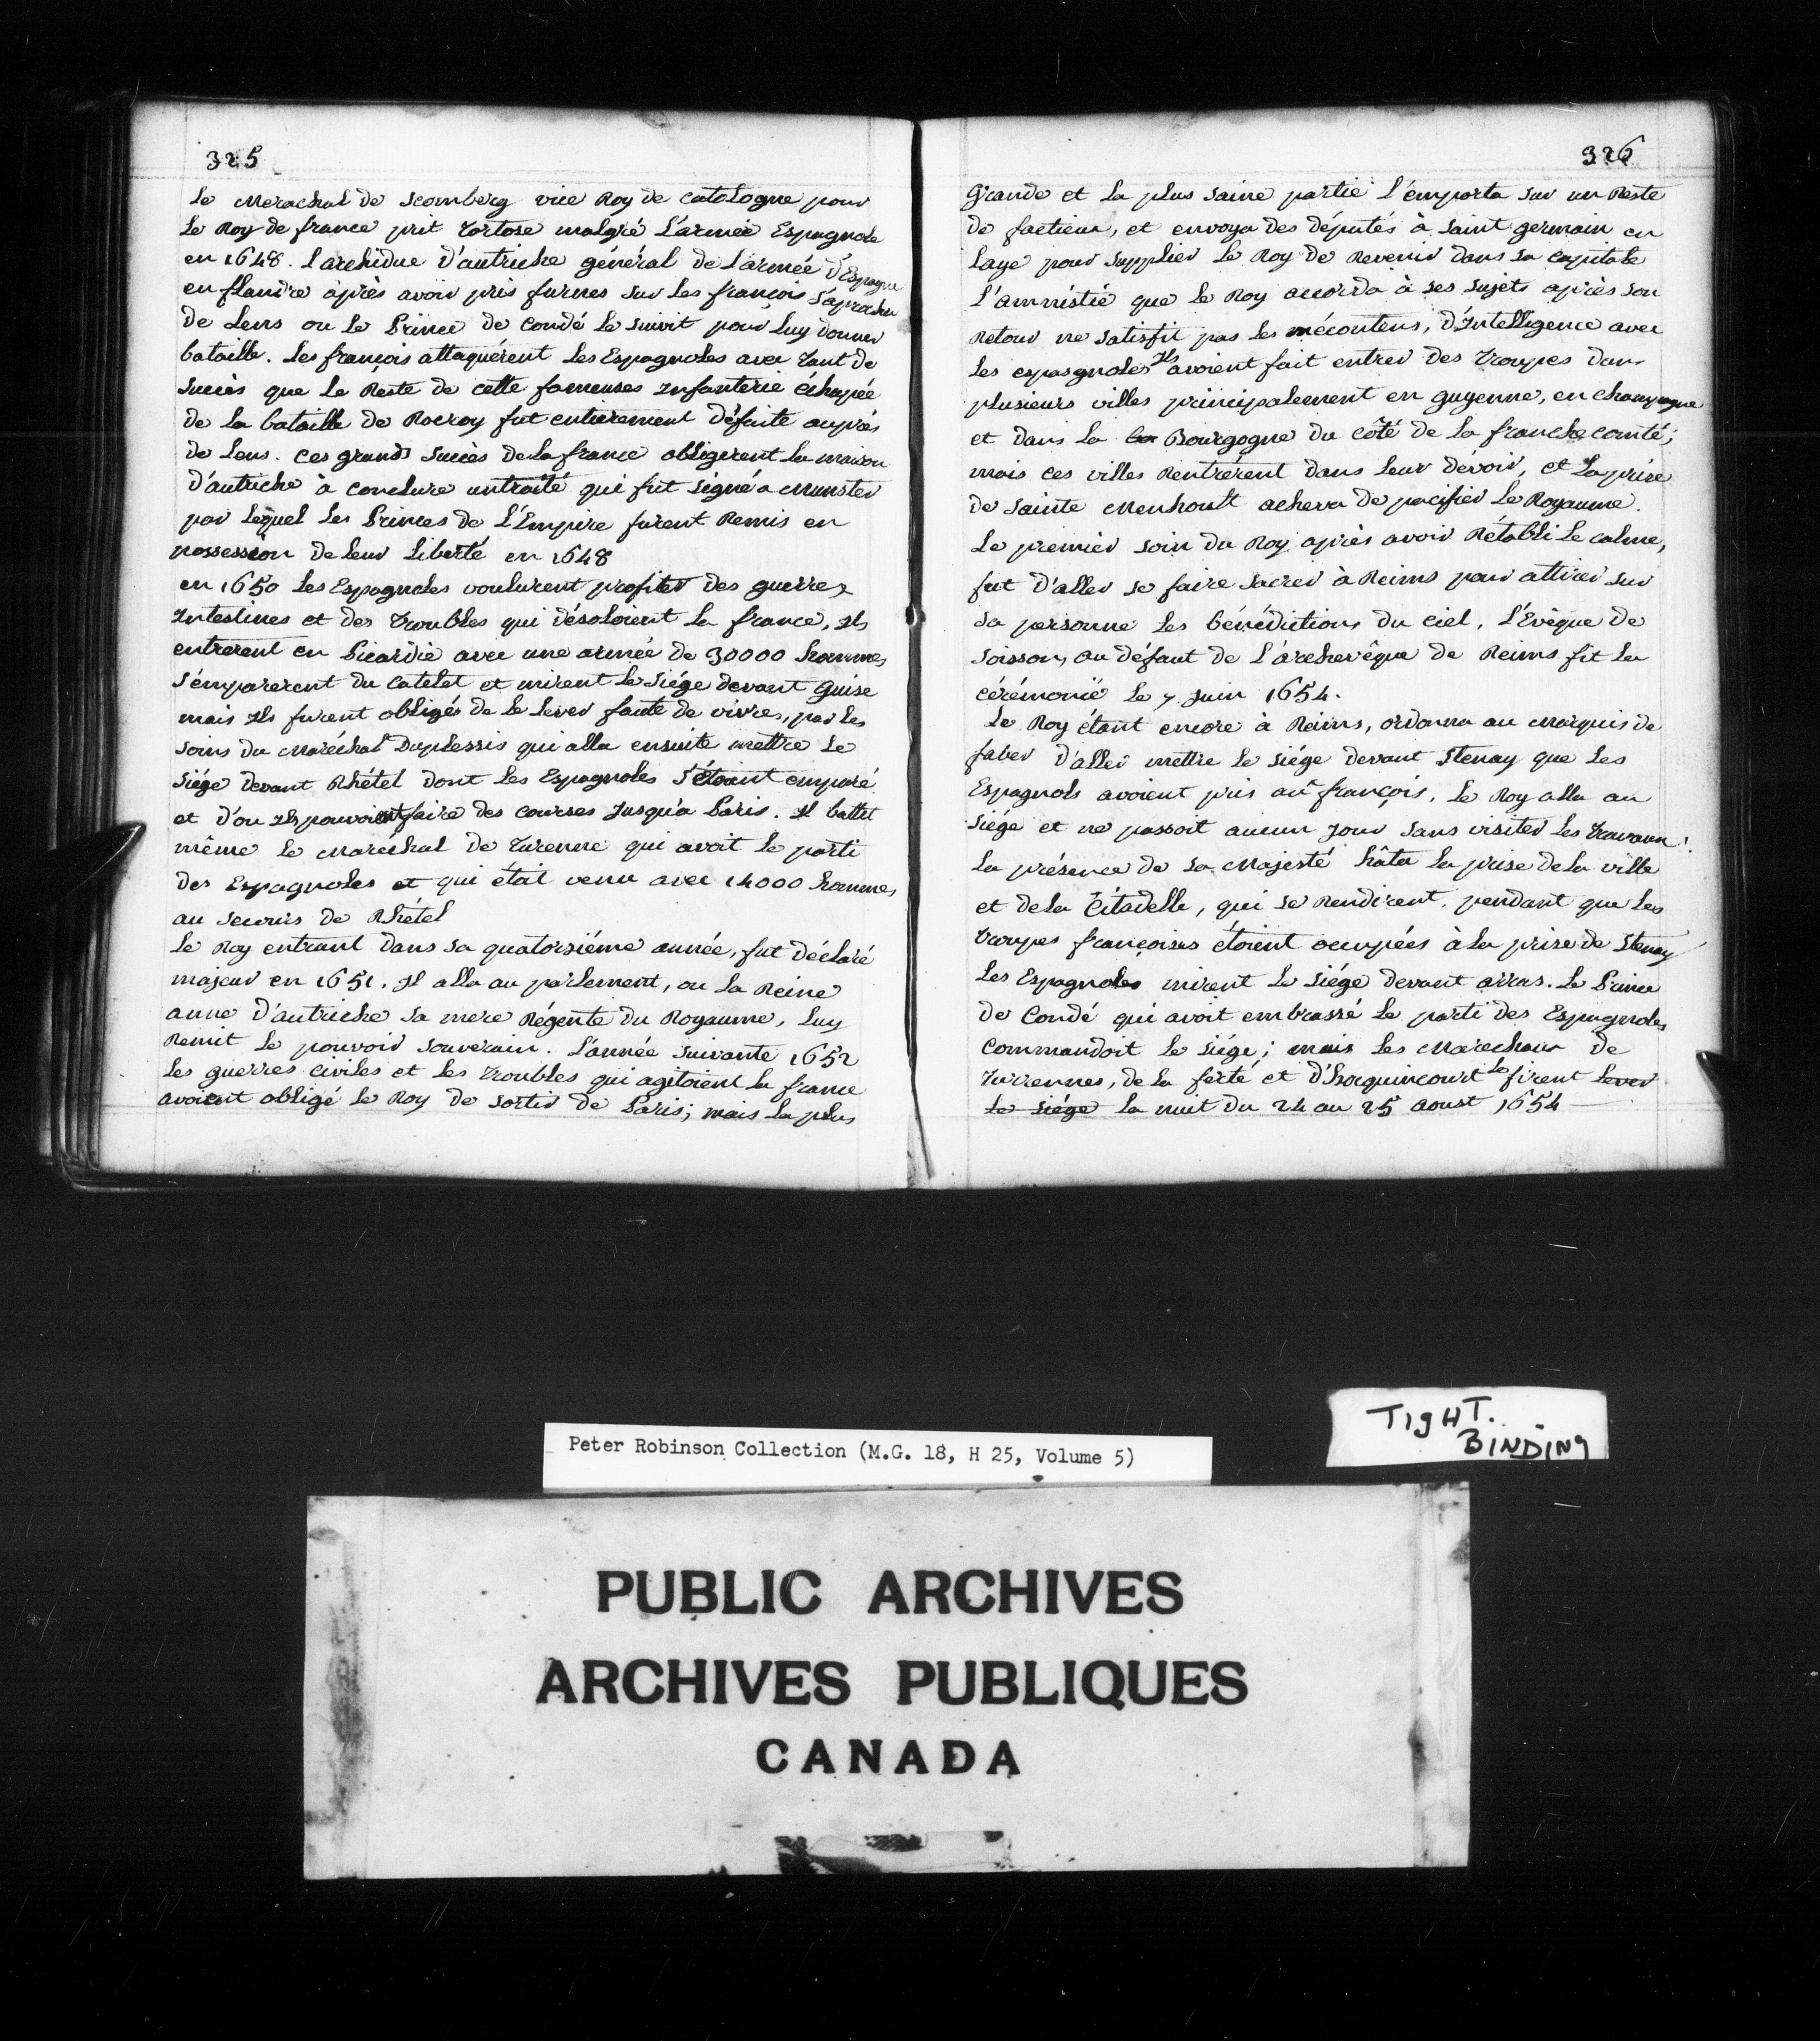 325
Le Merachal de Scomberg vice Roy de catologne pour
Le Roy de france prit Tortose malgré L'armée Espagnole
en 1648. l'archiduc d'autriche général de l'armée d'Espagne
en flandre aprés avoir pris furnes sur Les françois s'aprocha
de Lens ou Le Prince de Condé Le suivit pour Luy donner
bataille. Les françois attaquérent Les Espagnoles avec Tant de
succès que Le Reste de cette fameuses Infanterie échapée
de La bataille de Rocroy fut entierement défaite auprés
de Lens. ces grands succès de La france obligerent La maison
d'autriche à conclure untraité qui fut signé a Munster
par Lequel Les Princes de L'Empire furent Remis en
possession de Leur Liberté en 1648
en 1650 Les Espagnoles voulurent profiter des guerres
Intestines et des Troubles qui désoloient La france, Ils
entrerent en Picardie avec une armée de 30000 hommes
s'émparerent du Catelet et mirent Le siége devant Guise
mais Ils furent obligés de Le Lever faute de vivres, par Les
soins du Maréchal Duplessis qui alla ensuite mettre Le
siége devant Rhétel dont Les Espagnoles s'étoient emparé
et d'ou Ils pouvoient faire des courses Jusqu'a Paris. Il battit
même Le Marechal de Turenne qui avoit Le parti
des Espagnoles et qui étoit venu avec 14000 hommes
au secours de Rhétel
Le Roy entrant dans sa quatorziéme année, fut déclaré
majeur en 1651. Il alla au parlement, ou La Reine
anne d'autriche sa mere Régente du Royaume, Luy
Remit Le pouvoir souverain. L'année suivante 1652
Les guerres civiles et Les Troubles qui agitoient La france
avoient obligé Le Roy de sortir de Paris; mais La plus
326
Grande et La plus saine partie L'émporta sur un Reste
de factieux, et envoya des députés à saint germain en
Laye pour supplier Le Roy de Revenir dans sa capitale
L'amnistié que Le Roy accorda à ses sujets aprés son
Retour ne satisfit pas Les mécontens, d'Intelligence avec
Les espasgnoles Ils avoient fait entrer des Troupes dans
plusieurs villes principalement en guyenne, en champagne
et dans La La Bourgogne du côté de La franche comté;
mais ces villes Rentrerent dans Leur dévoir, et La prise
de sainte Menhoult acheva de pacifier Le Royaume.
Le premier soin du Roy aprés avoir Rétabli Le calme,
fut d'aller se faire sacrer à Reims pour attirer sur
sa personne Les bénédictions du ciel, L'évêque de
soisson, au défaut de L'archevêque de Reims fit La
cérémonié Le 7 Juin 1654.
Le Roy étant encore à Reims, ordonna au Marquis de
faber d'aller mettre Le siége devant Stenay que Les
Espagnols avoient pris aux françois, Le Roy alla au
siége et ne passoit aucun jour sans visiter Les Travaux;
La présence de sa Majesté hâta La prise de La ville
et de La Citadelle, qui se Rendirent. pendant que Les
Troupes françoises étoient occupées à La prise de Stenay
Les Espagnoles mirent Le siége devant arras. Le Prince
de Condé qui avoit embrassé Le parti des Espagnoles
Commandoit Le siége; mais Les Marechaux de
Turrennes, de La ferté et d'hocquincourt Le firent Lever
Le siége La nuit du 24 au 25 aoust 1654
TIGHT.
BINDING
Peter Robinson Collection (M.G. 18, H 25, Volume 5)
PUBLIC ARCHIVES
ARCHIVES PUBLIQUES
CANADA